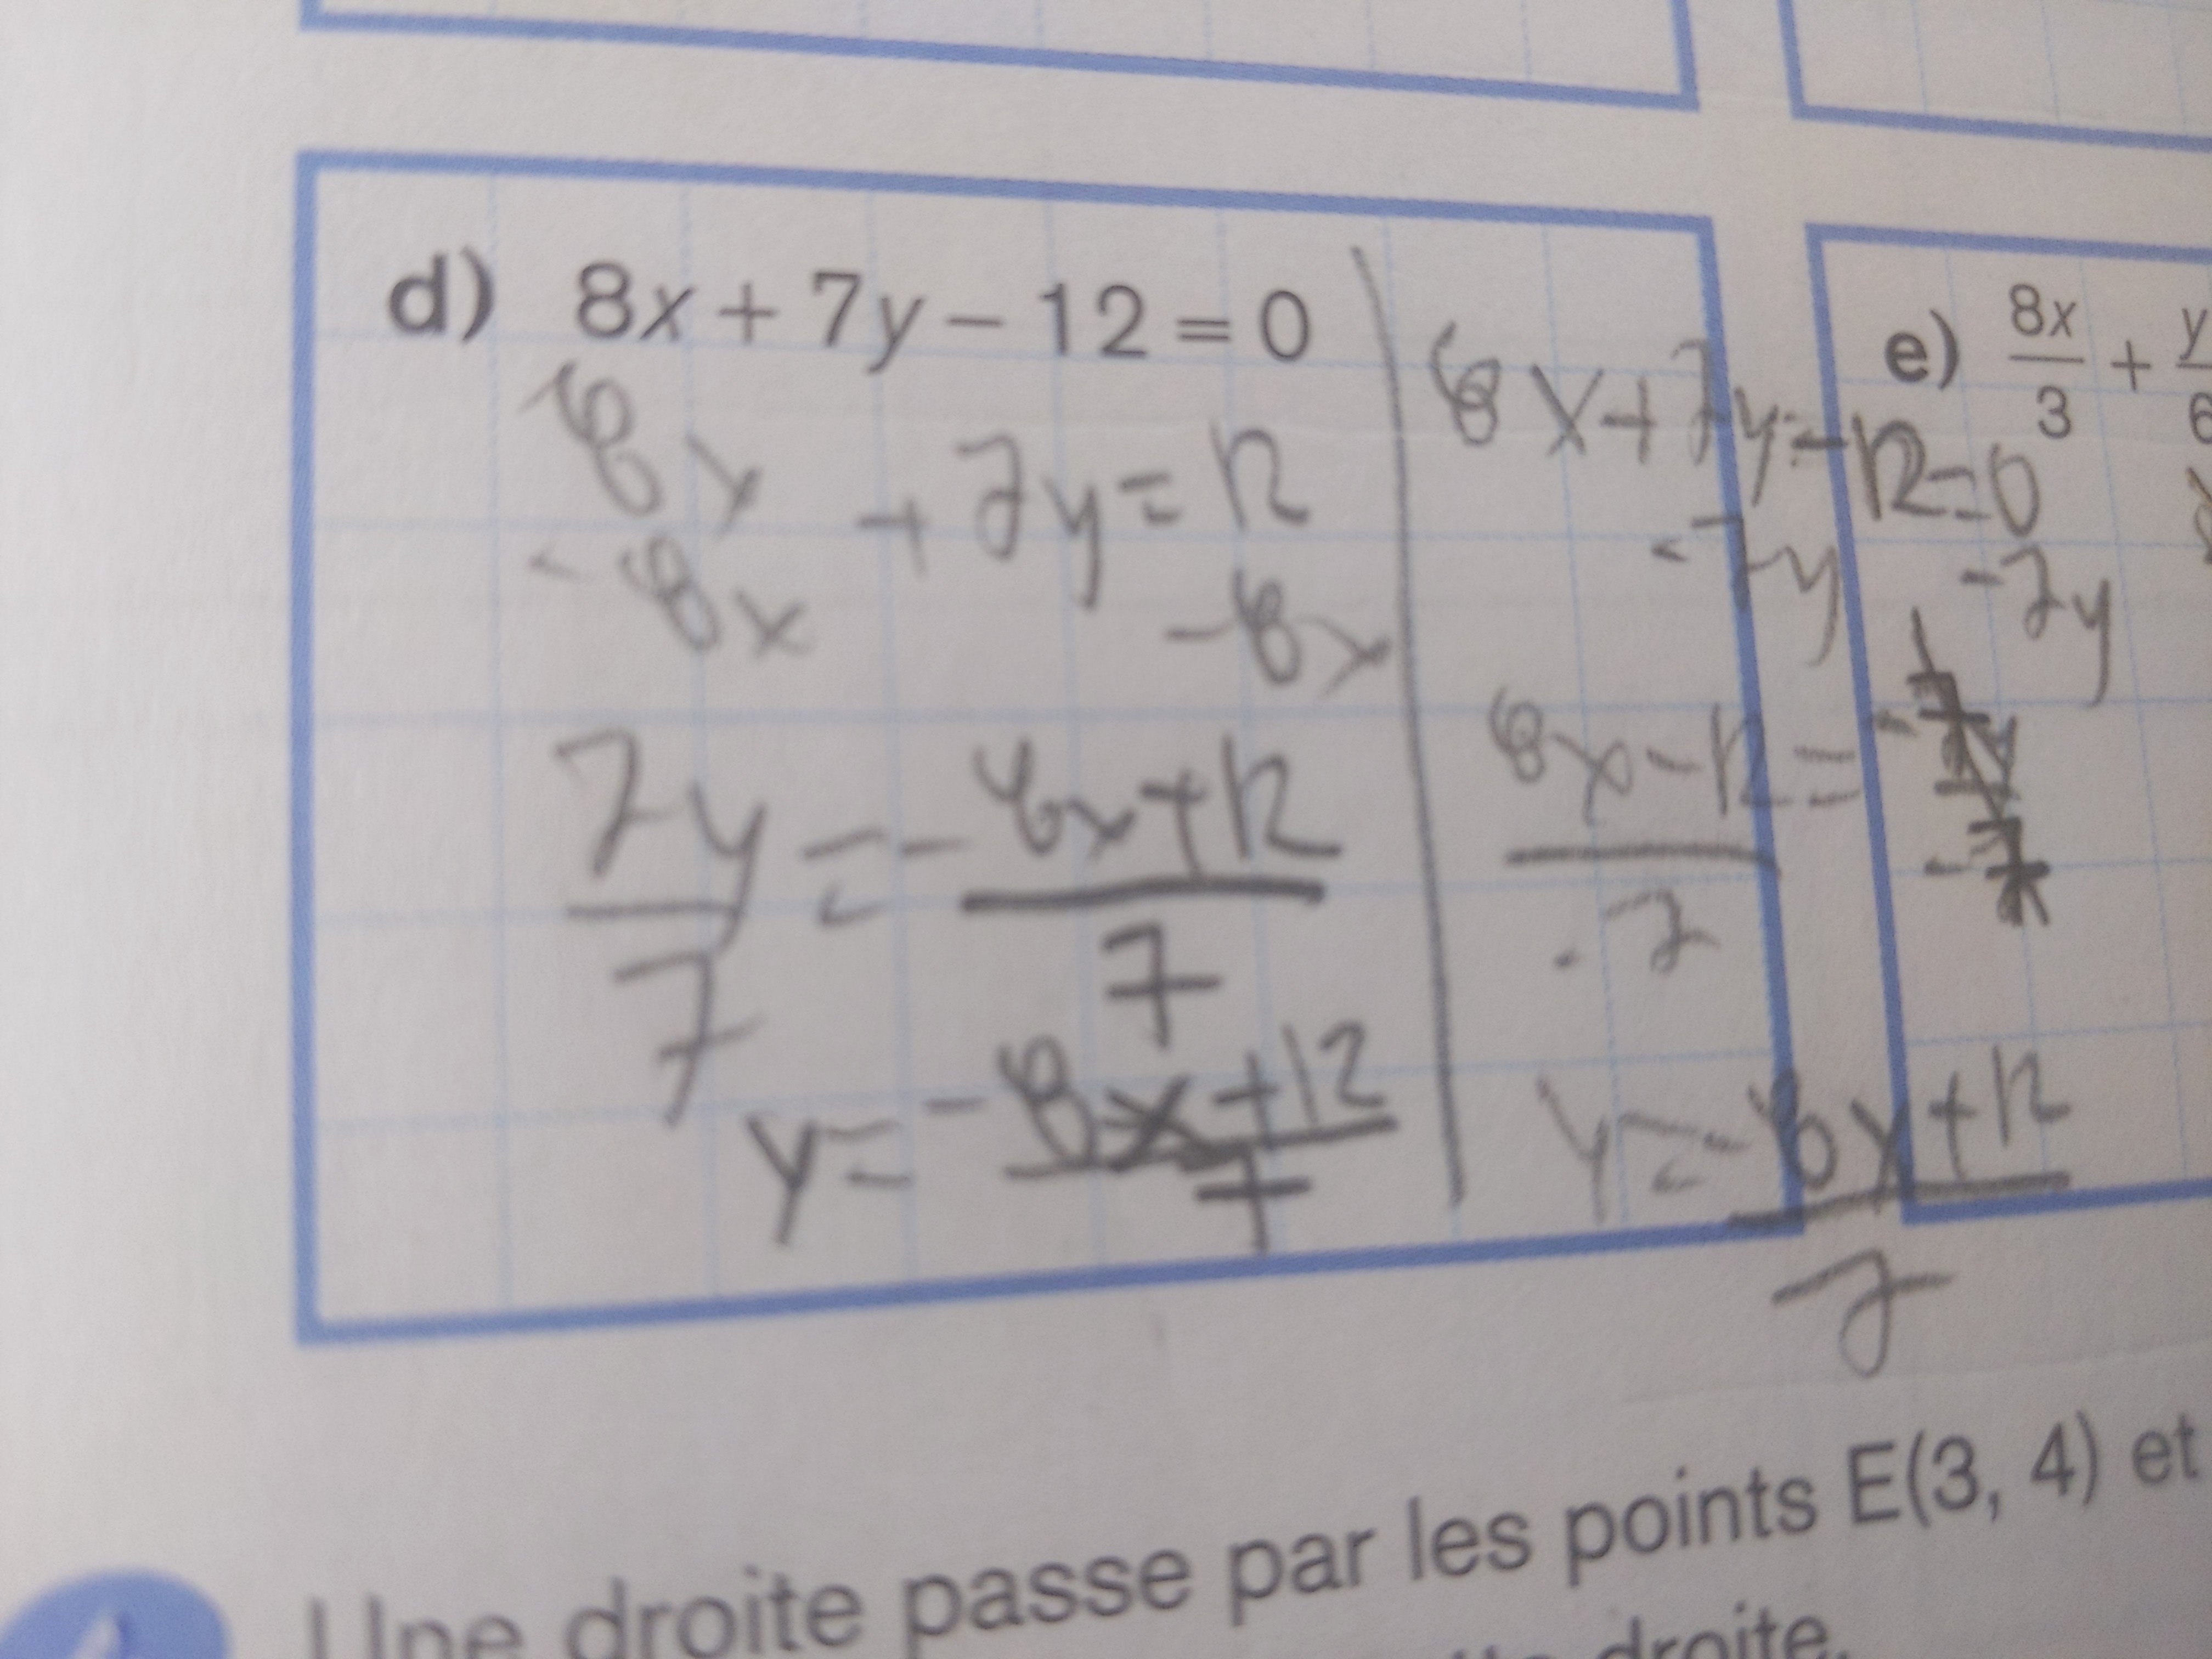 d) 8x + 7y – 12 = 0
8x + 7y = 12
- 8x - 8x
7y = - 8x + 12
7 7
y = - 8x + 12
7
8x + 7y - 12 = 0
- 7y - 7y
8x - 12 =
- 7
y = - 8x + 12
7
e) 8x + y
3 6
Une droite passe par les points E(3, 4) et
droite.